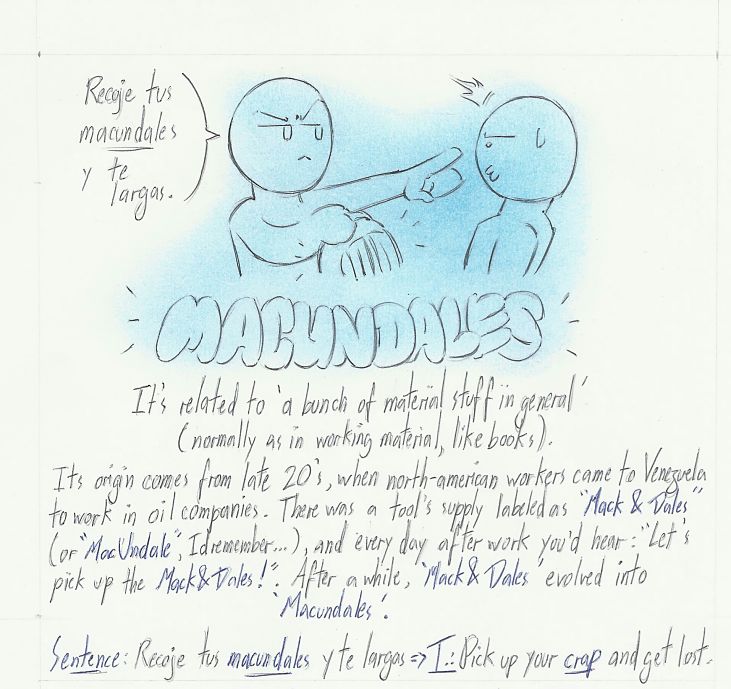 Recoje tus
macundales
y te
largas.
MACUNDALES
It's related to 'a bunch of material stuff in general'
(normally as in working material, like books).
Its origin comes from late 20's, when north-american workers came to Venezuela
to work in oil companies. There was a tool's supply labeled as "Mack & Dales"
(or "MacUndale", I dremember...), and every day after work you'd hear: "Let's
pick up the Mack & Dales!". After a while, 'Mack & Dales' evolved into
'Macundales'.
Sentence: Recoje tus macundales y te largas => T.: Pick up your crap and get lost.